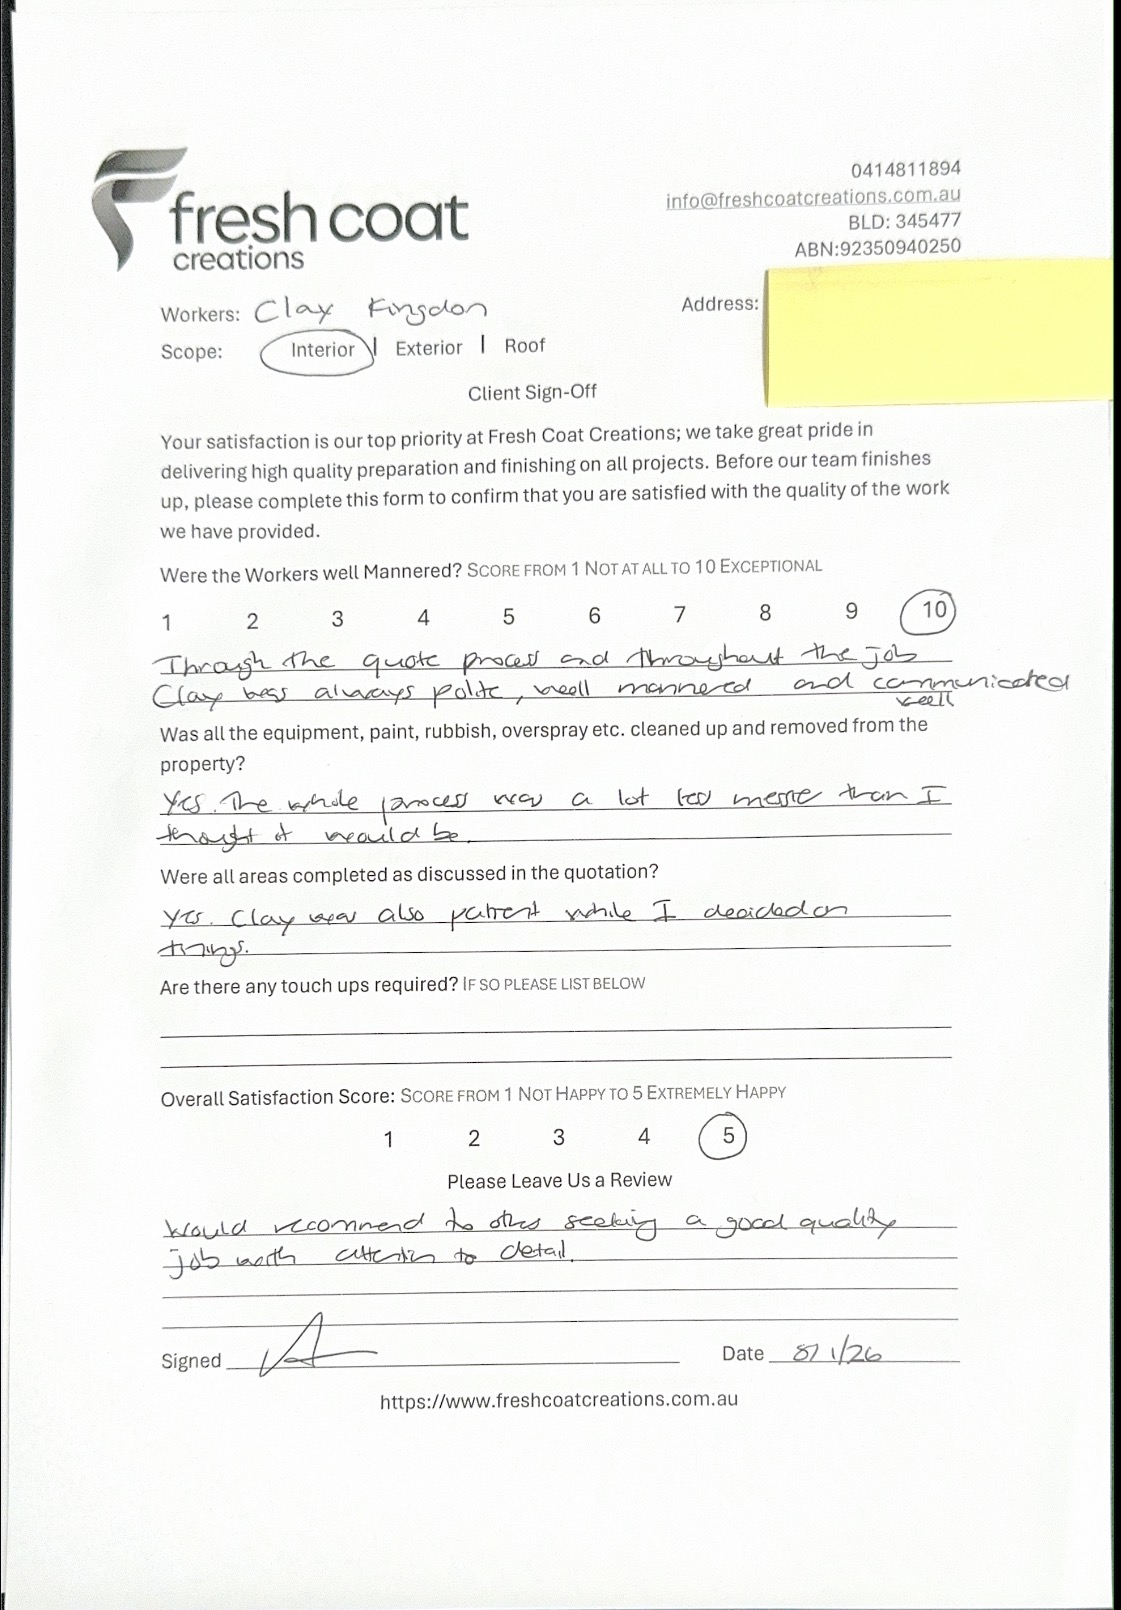 fresh coat
creations
0414811894
info@freshcoatcreations.com.au
BLD: 345477
ABN:92350940250
Workers: Clay Kingdon
Address:
Scope: Interior | Exterior | Roof
Client Sign-Off
Your satisfaction is our top priority at Fresh Coat Creations; we take great pride in
delivering high quality preparation and finishing on all projects. Before our team finishes
up, please complete this form to confirm that you are satisfied with the quality of the work
we have provided.
Were the Workers well Mannered? SCORE FROM 1 NOT AT ALL TO 10 EXCEPTIONAL
1 2 3 4 5 6 7 8 9 10
Through the quote process and throughout the job
Clay was always polite, well mannered and communicated
well
Was all the equipment, paint, rubbish, overspray etc. cleaned up and removed from the
property?
Yes. The whole process was a lot less messie than I
thought it would be.
Were all areas completed as discussed in the quotation?
Yes. Clay was also patient while I decided on
things.
Are there any touch ups required? IF SO PLEASE LIST BELOW
Overall Satisfaction Score: SCORE FROM 1 NOT HAPPY TO 5 EXTREMELY HAPPY
1 2 3 4 5
Please Leave Us a Review
Would recommend to others seeking a good quality
job with attention to detail.
Signed
Date 8/1/26
https://www.freshcoatcreations.com.au